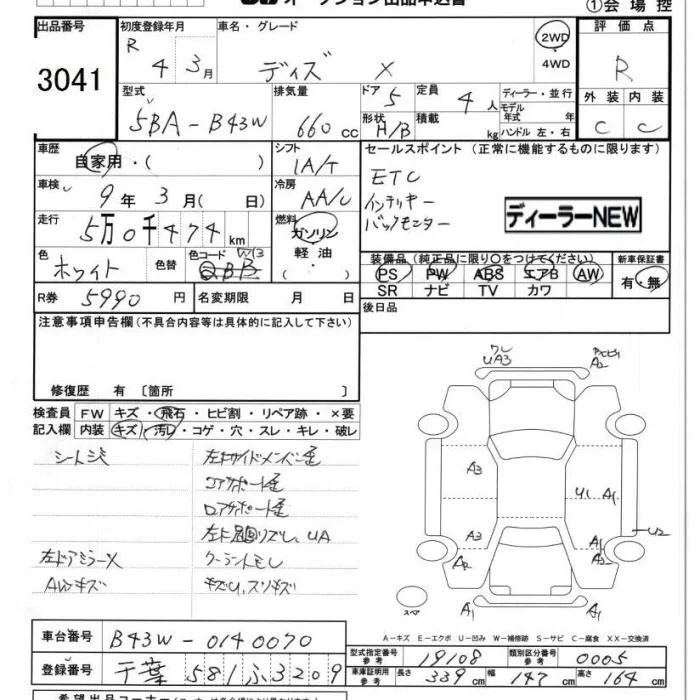 ①会場控
出品番号 3041
初度登録年月 R 4 3月
車名・グレード デイズ X
2WD
4WD
評価点 R
外装 内装
C C
型式 5BA-B43W
排気量 660cc
ドア 5
形状 H/B
定員 4人
積載 kg
ディーラー・並行
モデル年式 年式
ハンドル 左・右
車歴 自家用・( )
シフト IA/T
セールスポイント (正常に機能するものに限ります)
ETC
インテリキー
バックモニター
ディーラーNEW
車検 9年3月( 日)
冷房 AA/C
走行 5万0千474km
燃料 ガソリン
軽油
( ・ )
色 ホワイト
色替
色コード QBB
装備品 (純正品に限り○をつけてください)
PS PW ABS エアB AW
SR ナビ TV カワ
新車保証書
有・無
R券 5990円
名変期限 月 日
後日品
注意事項申告欄 (不具合内容等は具体的に記入して下さい)
修復歴 有 〔箇所 〕
検査員記入欄
FW キズ・飛石・ヒビ割・リペア跡・×要
内装 キズ・汚レ・コゲ・穴・スレ・キレ・破レ
左サイドメンバー歪
コアサポート歪
ロアサポート歪
UA
左ドアミラーX
クーラントモレ
AWキズ
ワレ
UA3
A2
A3
U1 A1
A3 A1
U2
A2
A2
A1 A1
スペア
A-キズ E-エクボ U-凹み W-補修跡 S-サビ C-腐食 XX-交換済
車台番号 B43W-0140070
登録番号 千葉 581 ふ 3209
型式指定番号 参考 19108
類別区分番号 参考 0005
車庫証明用 参考 長さ 339cm 幅 147cm 高さ 164cm